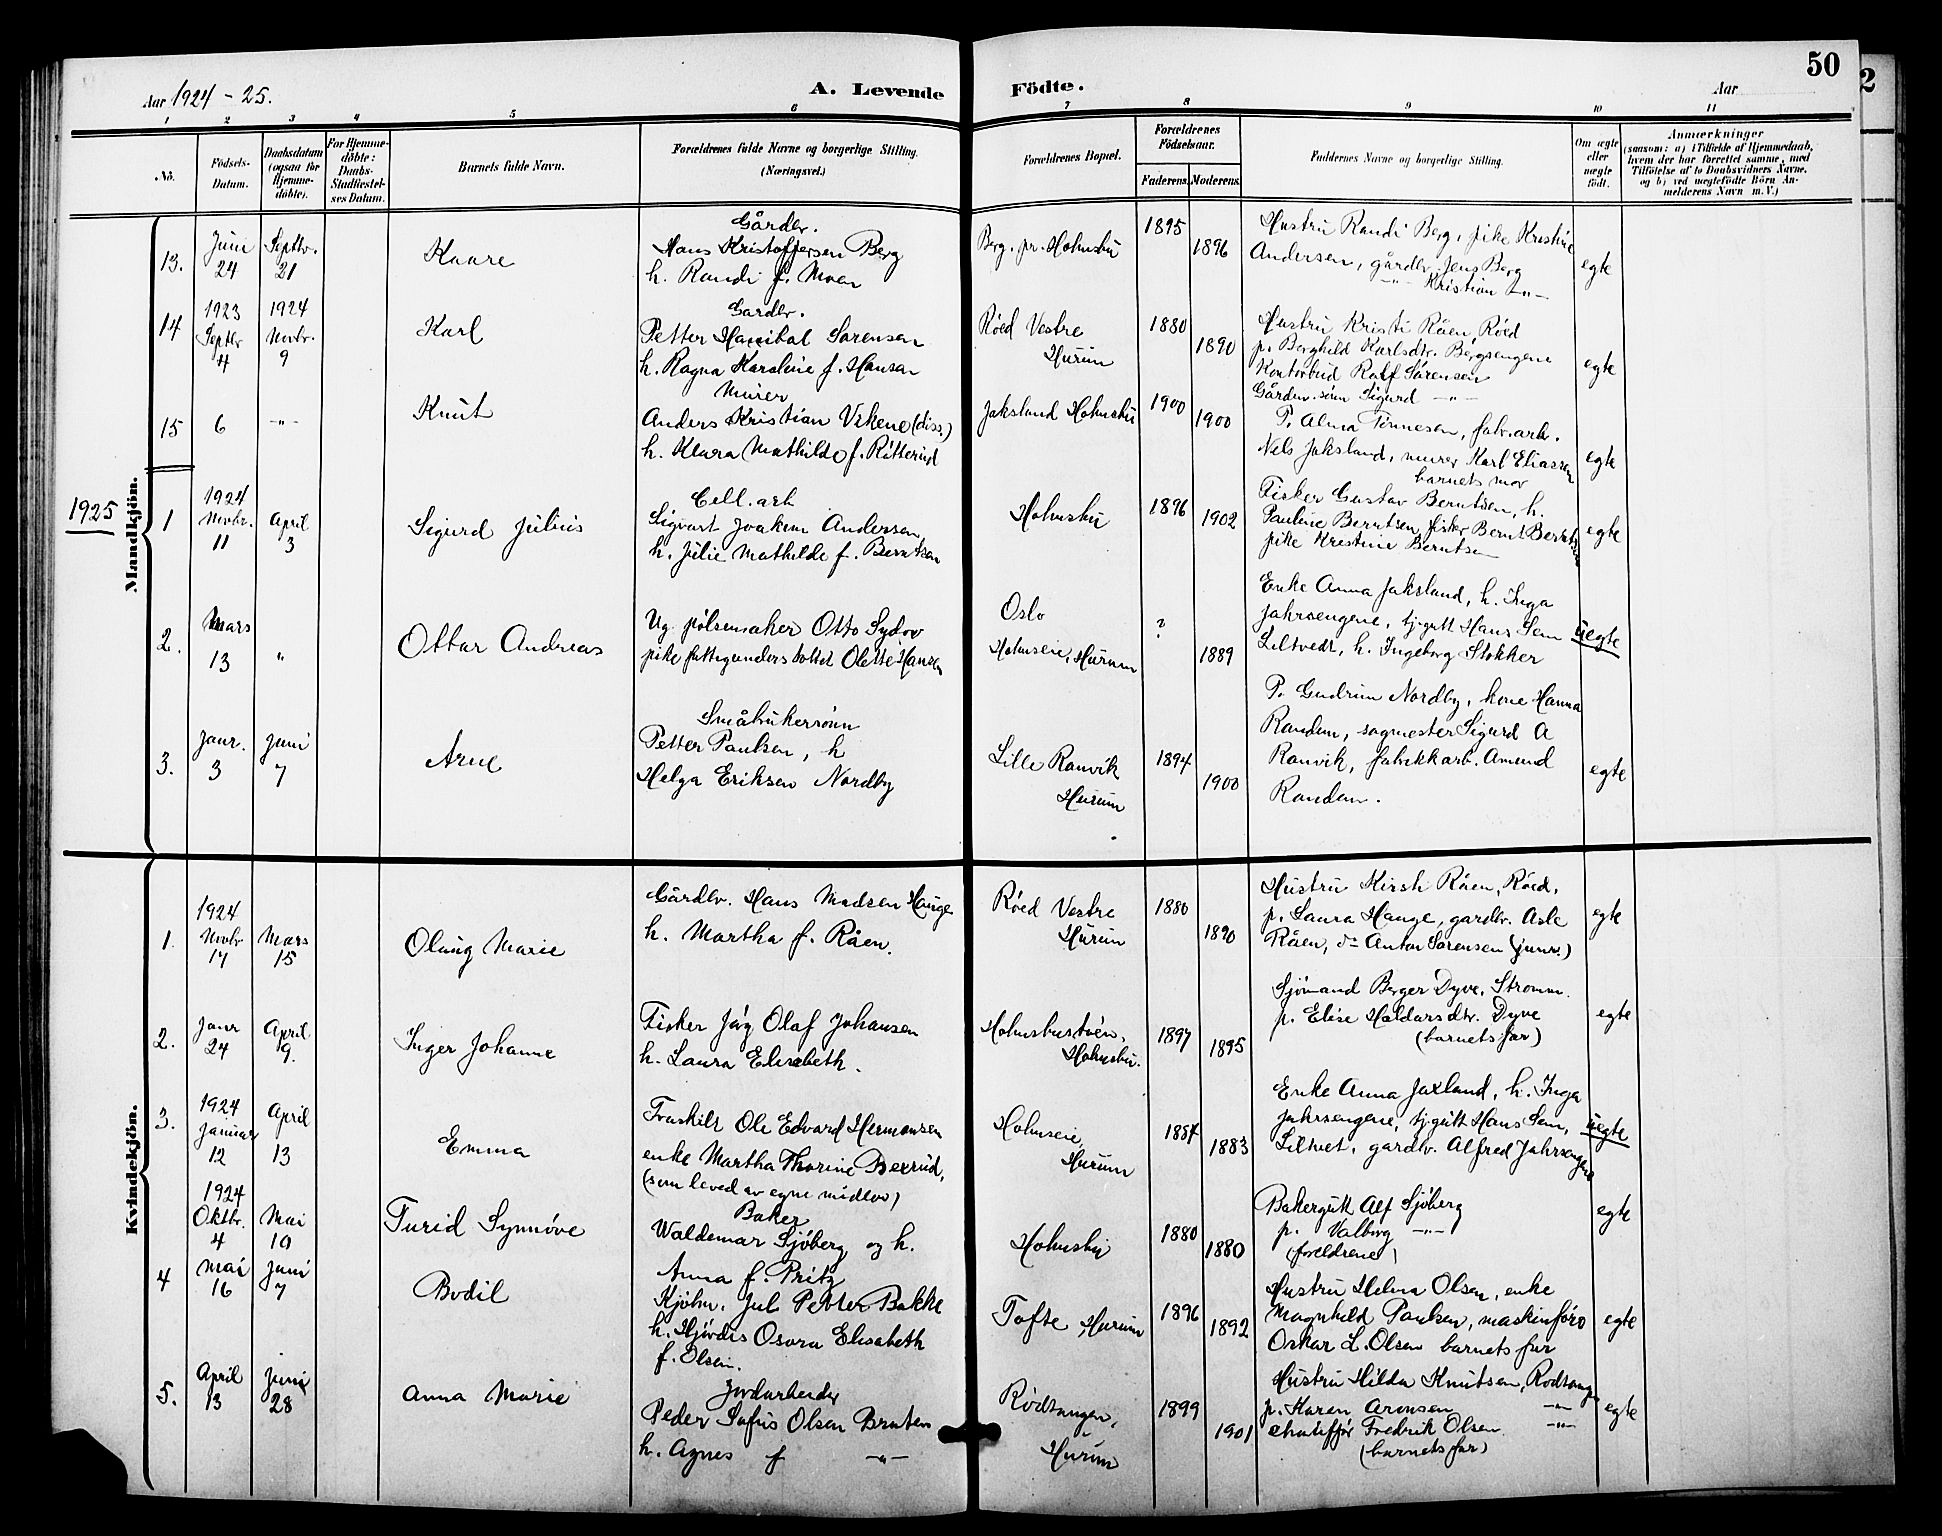 Aar 1924 - 25.
A. Levende Födte.
Aar
50
2
1 2 3 4 5 6 7 8 9 10 11
No.
Födsels-Datum.
Daabsdatum (ogsaa for Hjemmedöbte).
For Hjemmedöbte: Daabs-Stadfæstelses Datum.
Barnets fulde Navn.
Forældrenes fulde Navne og borgerlige Stilling.
(Næringsvei.)
Forældrenes Bopæl.
Forældrenes Födselsaar.
Faderens. Moderens.
Faddernes Navne og borgerlige Stilling.
Om ægte eller uægte födt.
Anmærkninger
(saasom: a) i Tilfælde af Hjemmedaab,
hvem der har forrettet samme, med
Tilföielse af to Daabsvidners Navne,
og b) ved uægtefödte Börn An-
melderens Navn m. V.)
Mandkjön.
13.
Juni 24
Septbr. 21
Kaare
Gårdbr.
Hans Kristoffersen Berg
h. Randi f. Moen
Berg, pr. Holmsbu
1895
1896
Hustru Randi Berg, pike Kristine
Andersen, gårdbr. Jens Berg
-"- Kristian -"-
egte
14
1923 Septbr 4
1924 Novbr. 9
Karl
Gardbr.
Petter Hannibal Sørensen
h. Ragna Karoline f. Hansen
Røed Vestre
Hurum
1880
1890
Hustru Kristi Råen, Røed
p. Borghild Karlsdtr. Bergsengene
Kontorbud Rolf Sørensen
Gårdbr. sønn Sigurd -"-
egte
15
6
-"-
Knut
Murer
Anders Kristian Vikene (diss.)
h. Klara Mathilde f. Rötterud
Jaksland Holmsbu
1900
1900
P. Alma Tønnesen, fabr. arb.
Nels Jaksland, murer Karl Eliassen
barnets mor
egte
1925
1
1924 Novbr. 11
April 3
Sigurd Julius
Cell. arb
Sigvart Joakim Andersen
h. Julie Mathilde f. Berntsen
Holmsbu
1896
1902
Fisker Gustav Berntsen, h.
Pauline Berntsen, fisker Bernt Berntsen
pike Kristine Berntsen
egte
2.
Mars 13
"
Ottar Andreas
Ug. pølsemaker Otto Sydov
pike fattigunderstøttet Olette Hansen
Oslo
Holmseie, Hurum
?
1889
Enke Anna Jaksland, h. Inga
Jahrsengene, tj.gutt Hans Sem
Liltvedt, h. Ingeborg Stokker
uegte
3.
Janr. 3
Juni 7
Arne
Småbrukersønn
Petter Paulsen, h
Helga Eriksen Nordby
Lille Ranvik
Hurum
1894
1900
P. Gudrun Nordby, kone Hanna
Randem, sagmester Sigurd A
Ranvik, fabrikkarb. Amund
Randem.
egte
Kvindekjön.
1.
1924 Novbr 17
Mars 15
Olaug Marie
Gårdbr. Hans Madsen Hauge
h. Martha f. Råen.
Røed Vestre
Hurum
1880
1890
Hustru Kirsti Råen, Røed,
p. Laura Hauge, gardbr. Asle
Råen, do Anton Sørensen (junr.)
egte
2.
Janr 24
April 19.
Inger Johanne
Fisker Jörg Olaf Johansen
h. Laura Elisabeth.
Holmsbustøen,
Holmsbu.
1897
1895
Sjömand Berger Dyve, Stromm.
p. Elise Haldorsdtr. Dyve
(barnets far)
egte
3.
1924 Januar 12
April 13
Emma
Fraskilt Ole Edvard Hermansen
enke Martha Thorine Bexrud,
(som leved av egne midler)
Holmseie,
Hurum
1884
1883
Enke Anna Jaxland, h. Inga
Jahrsengene, tj.gutt Hans Sem,
Liltvet, gardbr. Alfred Jahrsengene
uegte
1924 Oktbr. 4
Mai 10
Turid Synnøve
Baker
Waldemar Sjøberg og h.
Anna f. Pritz
Holmsbu
1880
1880
Bakergutt Alf Sjøberg
p. Valborg -"-
(foreldrene)
egte
4
Mai 16
Juni 7
Bodil
Kjøbm. Jul Petter Bakke
h. Hjördis Osora Elisabeth
f. Olsen.
Tofte, Hurum
1896
1892
Hustru Helma Olsen, enke
Magnhild Paulsen, maskinfører
Oskar L. Olsen barnets far
egte
5.
April 13
Juni 28
Anna Marie
Jordarbeider
Peder Sofus Olsen Braten
h. Agnes f -"-
Rødtangen,
Hurum
1899
1901
Hustru Hilda Knutsen, Rødtangen
p. Karen Aronsen -"-
Chauffør Fredrik Olsen -"-
(barnets far)
egte